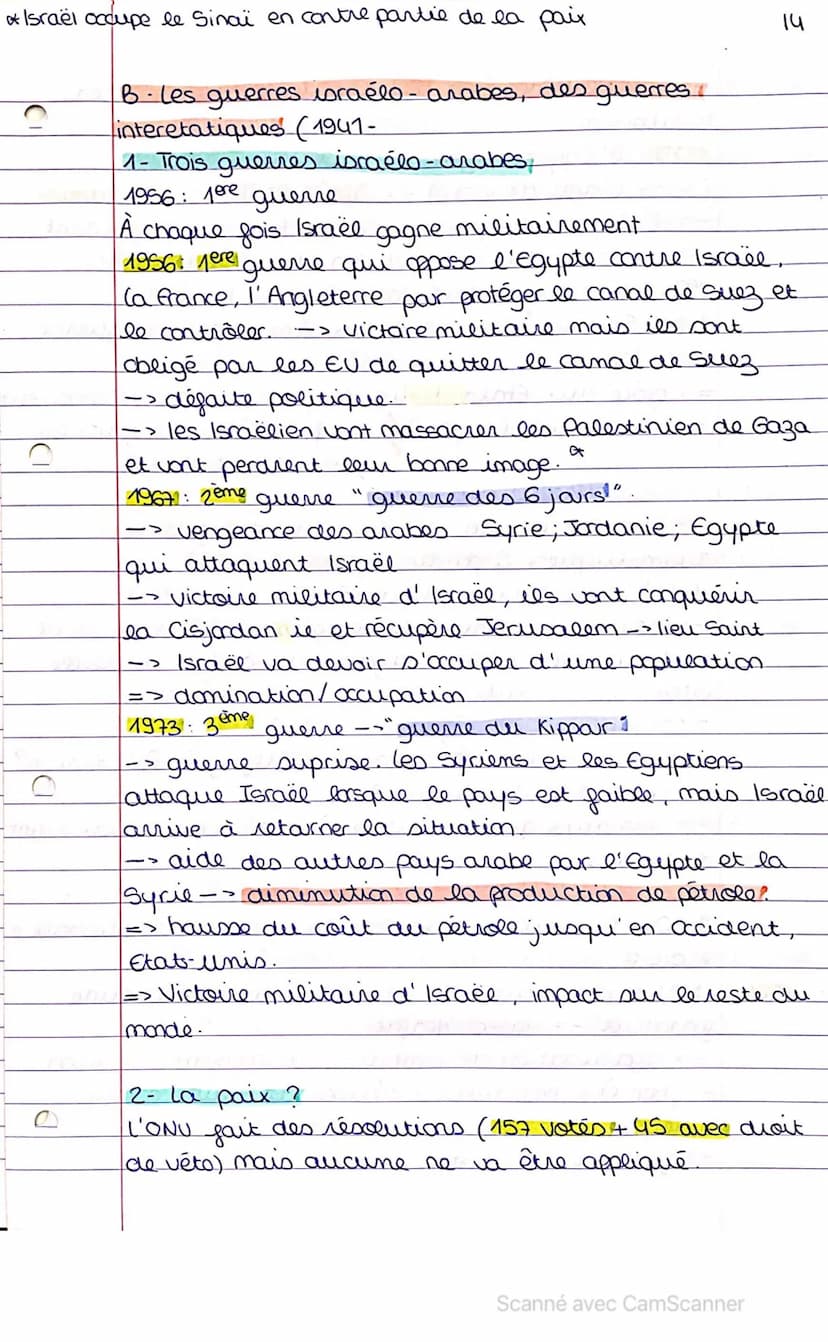 * Israël occupe le Sinaï en contre partie de la paix
14
B - Les guerres israélo - arabes, des guerres
interetatiques (1941-
1- Trois guerres israélo-arabes,
1956 : 1ère guerre
À chaque fois Israël gagne militairement
1956: 1ere guerre qui oppose l'Egypte contre Israël,
la france, l'Angleterre pour protéger le canal de Suez et
le contrôler. --> victoire militaire mais ils sont
obligé par les EU de quitter le canal de Suez
--> défaite politique.
--> les Israëlien vont massacrer les Palestinien de Gaza
et vont perdrent leur bonne image. *
1967: 2ème guerre "guerre des 6 jours".
--> vengeance des arabes Syrie ; Jordanie ; Egypte
qui attaquent Israël
--> victoire militaire d'Israël, ils vont conquérir
la Cisjordan ie et récupère Jerusalem --> lieu Saint
--> Israël va devoir s'occuper d'une population
=> domination/occupation
1973 : 3ème guerre --> "guerre du Kippour"
--> guerre suprise. Les Syriens et les Egyptiens
attaque Israël lorsque le pays est faible, mais Israël
arrive à retourner la situation.
--> aide des autres pays arabe par l'Egypte et la
Syrie --> diminution de la production de pétrole.
=> hausse du coût du pétrole jusqu'en occident,
Etats-Unis.
=> Victoire militaire d'Israël, impact sur le reste du
monde.
2- La paix ?
L'ONU fait des résolutions (157 votés + 45 avec droit
de véto) mais aucune ne va être appliqué.
Scanné avec CamScanner